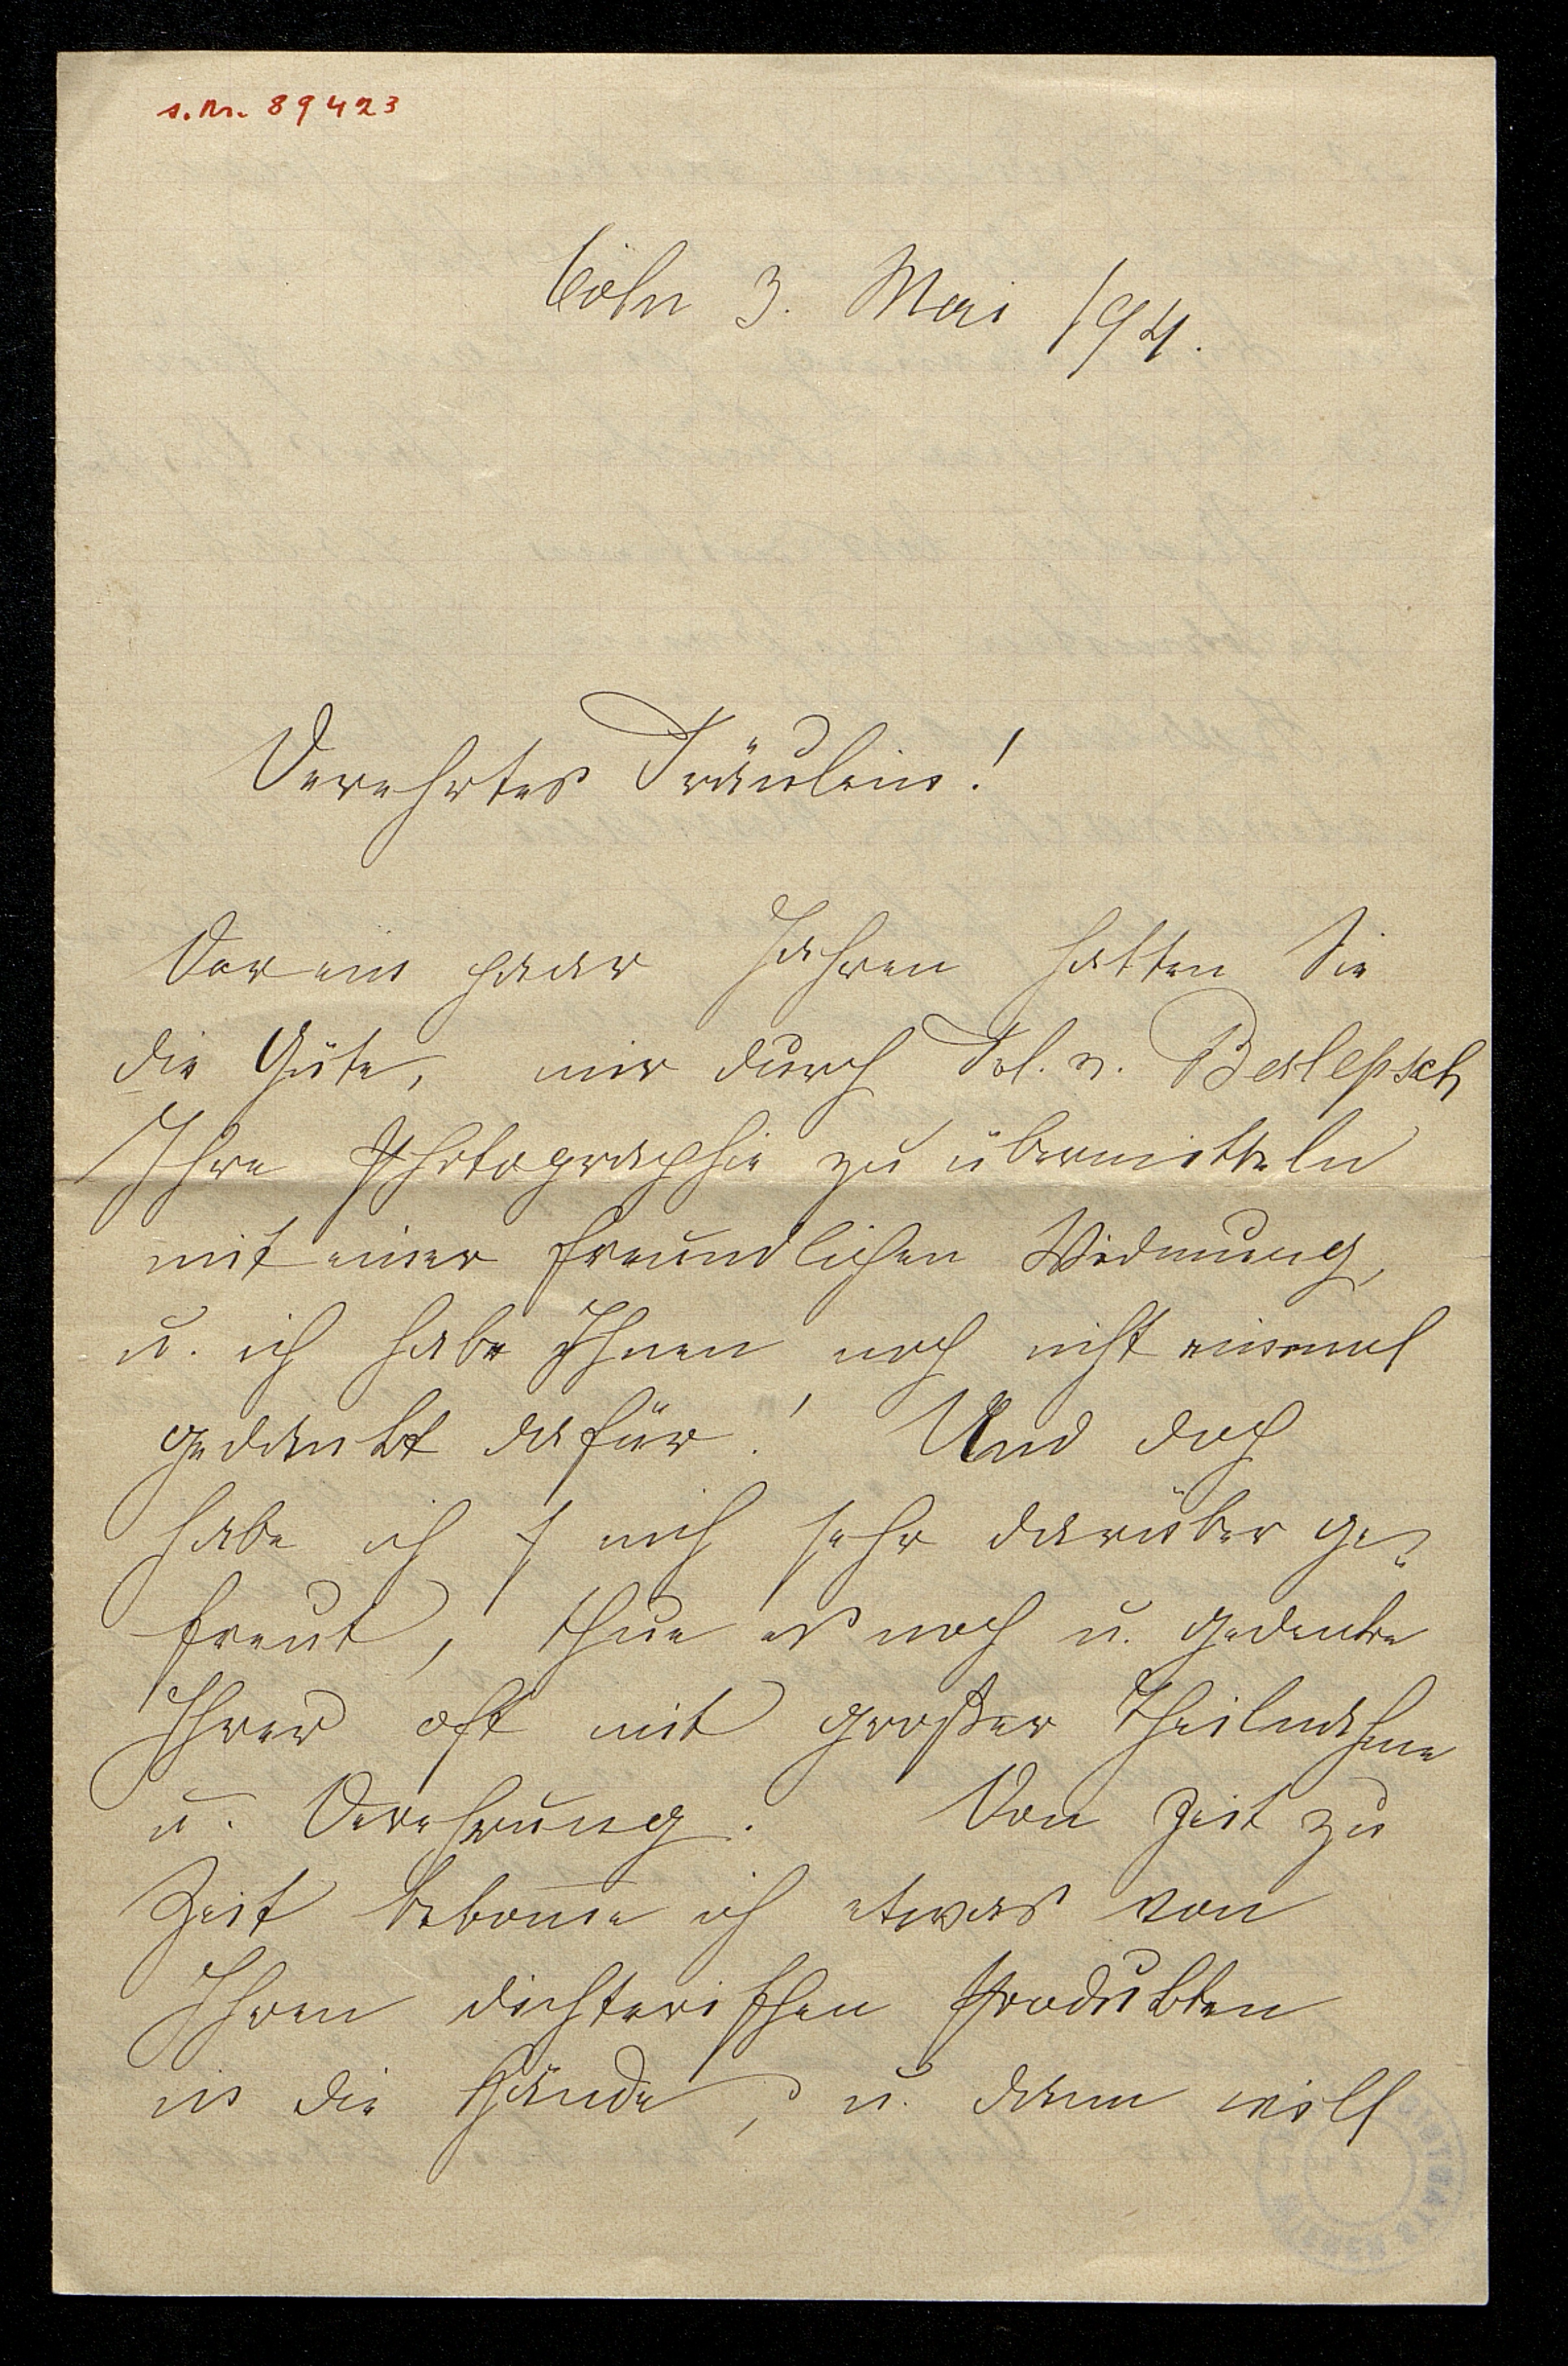 s. Nr. 89423
Cöln 3. Mai 194.
Verehrtes Fräulein!
Vor ein paar Jahren hatten Sie
die Güte, mir durch Frl. v. Berlepsch
Ihre Photographie zu übermitteln
mit einer freundlichen Widmung,
u. ich habe Ihnen noch nicht einmal
gedankt dafür! Und doch
habe ich mich sehr darüber ge-
freut, thue es noch u. gedenke
Ihrer oft mit großer Theilnahme
u. Verehrung. Von Zeit zu
Zeit bekome ich etwas von
Ihren dichterischen Produkten
in die Hände, u. dann will